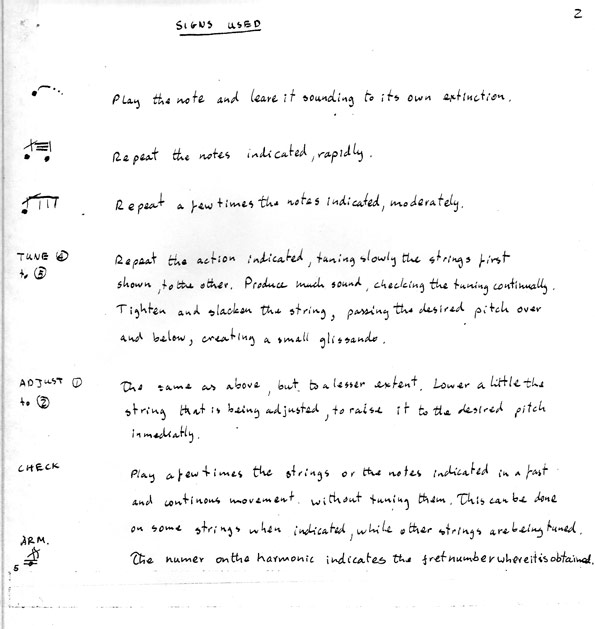 2
SIGNS USED
Play the note and leave it sounding to its own extinction.
Repeat the notes indicated, rapidly.
Repeat a few times the notes indicated, moderately.
TUNE ⑥ Repeat the action indicated, tuning slowly the strings first
to ⑤ shown, to the other. Produce much sound, checking the tuning continually.
Tighten and slacken the string, passing the desired pitch over
and below, creating a small glissando.
ADJUST ① The same as above, but to a lesser extent. Lower a little the
to ② string that is being adjusted, to raise it to the desired pitch
inmediatly.
CHECK Play a few times the strings or the notes indicated in a fast
and continous movement. without tuning them. This can be done
on some strings when indicated, while other strings are being tuned.
ARM. The numer on the harmonic indicates the fret number where it is obtained.
5